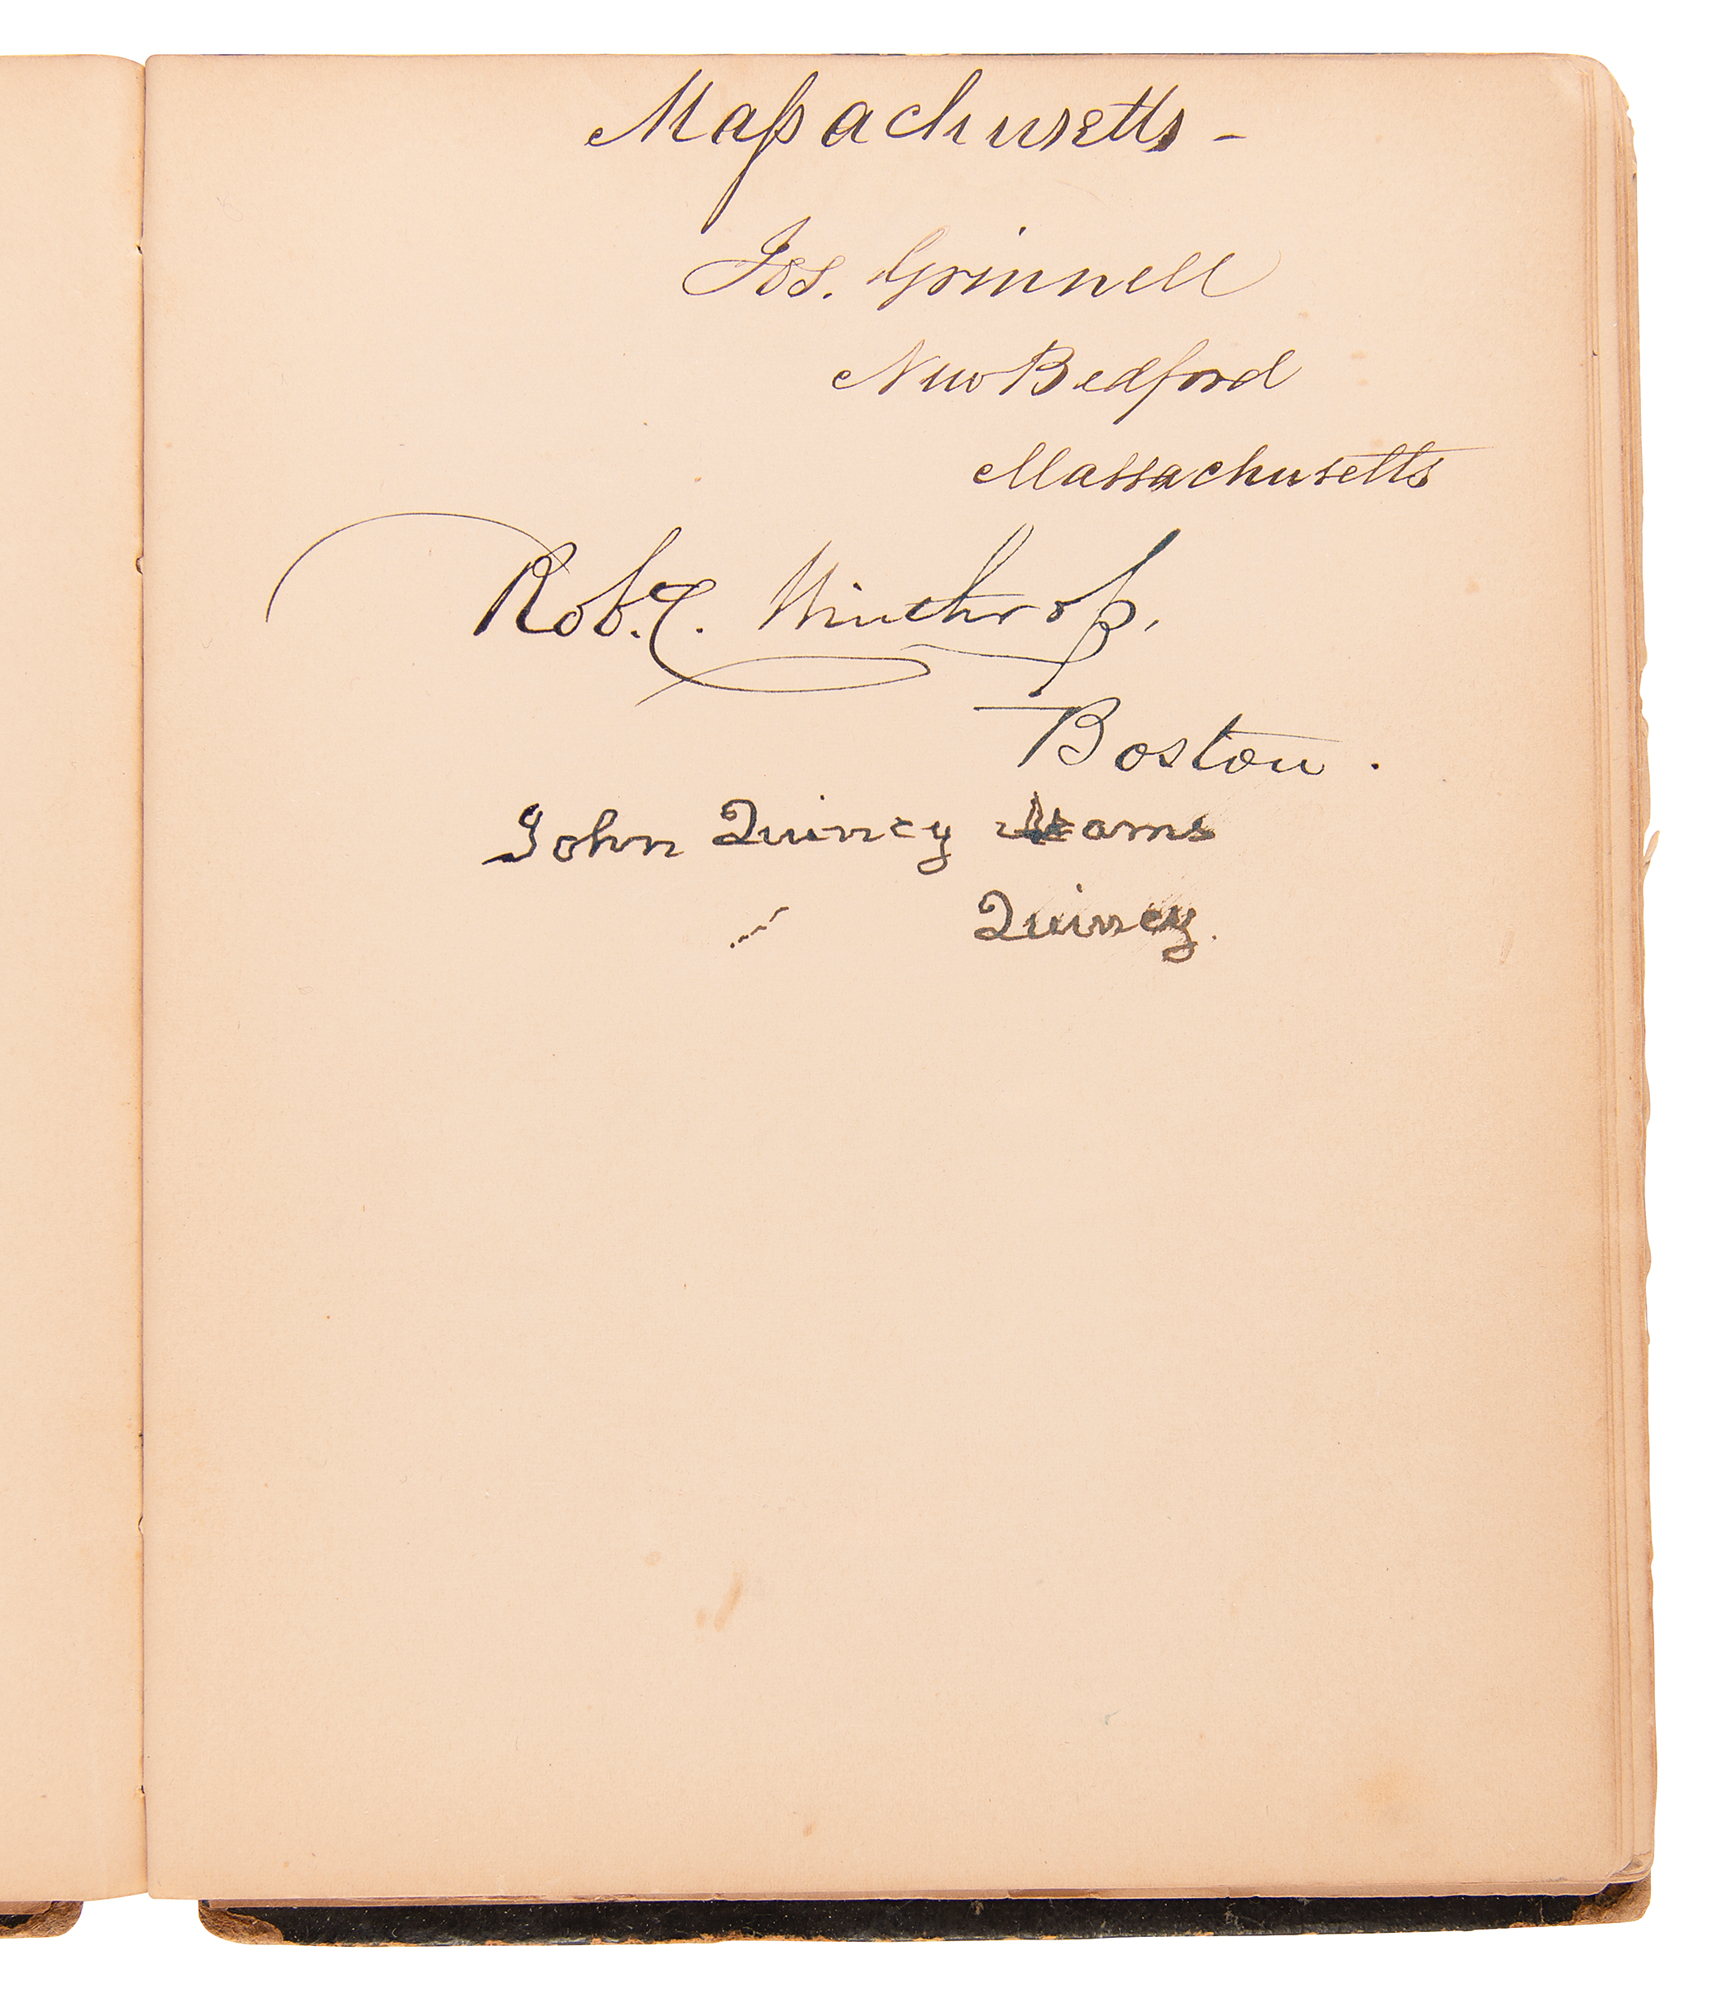 Maſsachusetts -
Jos. Grinnell
New Bedford
Massachusetts
Rob. C. Winthrop,
Boston.
John Quincy Adams
Quincy.